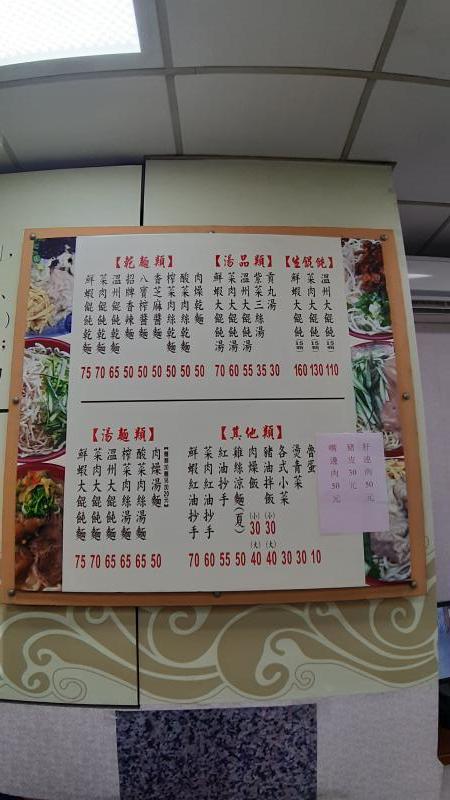 【乾麵類】
肉燥乾麵 50
酸菜肉絲乾麵 50
榨菜肉絲乾麵 50
香芝麻醬麵 50
八寶榨醬麵 50
招牌香辣麵 50
溫州餛飩乾麵 65
菜肉餛飩乾麵 70
鮮蝦餛飩乾麵 75
【湯品類】
貢丸湯 30
紫菜三絲湯 35
溫州大餛飩湯 55
菜肉大餛飩湯 60
鮮蝦大餛飩湯 70
【生餛飩】
溫州大餛飩 110
菜肉大餛飩 130
鮮蝦大餛飩 160
【湯麵類】
肉燥湯麵 50
酸菜肉絲湯麵 65
榨菜肉絲湯麵 65
溫州大餛飩麵 65
菜肉大餛飩麵 70
鮮蝦大餛飩麵 75
【其他類】
魯蛋 10
燙青菜 30
各式小菜 30
豬油拌飯 (小) 30 (大) 40
肉燥飯 (小) 30 (大) 40
雞絲涼麵(夏) 50
紅油抄手 50
菜肉紅油抄手 60
鮮蝦紅油抄手 70
肝連肉 50元
豬皮 30元
嘴邊肉 50元